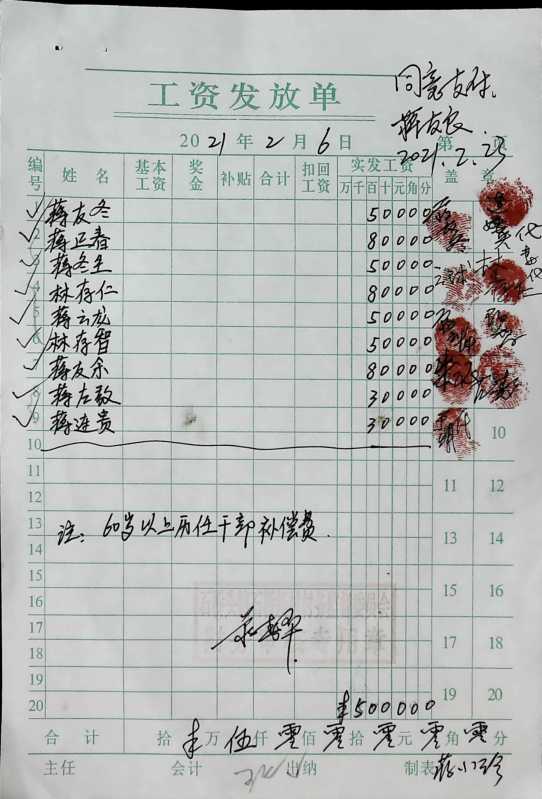 同意支付。
工资发放单
蒋友农.
2021年2月6日 第 页
2021.2.23
编号 姓名 基本工资 奖金 补贴 合计 扣回工资 实发工资 盖章
万千百十元角分
1 蒋友冬 50000
2 蒋正春 80000
3 蒋冬生 50000
4 林存仁 80000
5 蒋云龙 50000
6 林存智 50000
7 蒋友余 80000
8 蒋左敖 30000
9 蒋连贵 30000
10 10
11 11 12
12
13 13 14
注：60岁以上历任干部补偿费.
14
15 15 16
16
17 17 18
18
19 19 20
20 ¥500000
合计 拾 万伍仟零佰零拾零元零角零分
主任 会计 出纳 制表